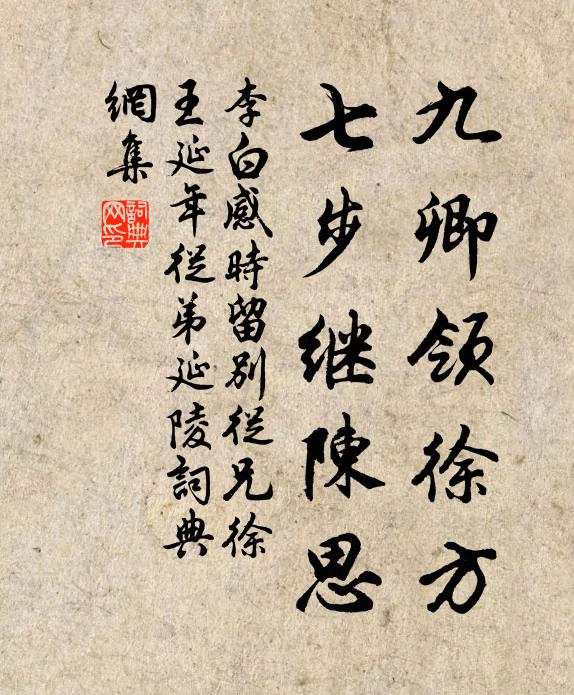 九卿領徐方
七步继陳思
李白感時留別從兄徐
王延年從弟延陵詞典
網集
詞典
网印